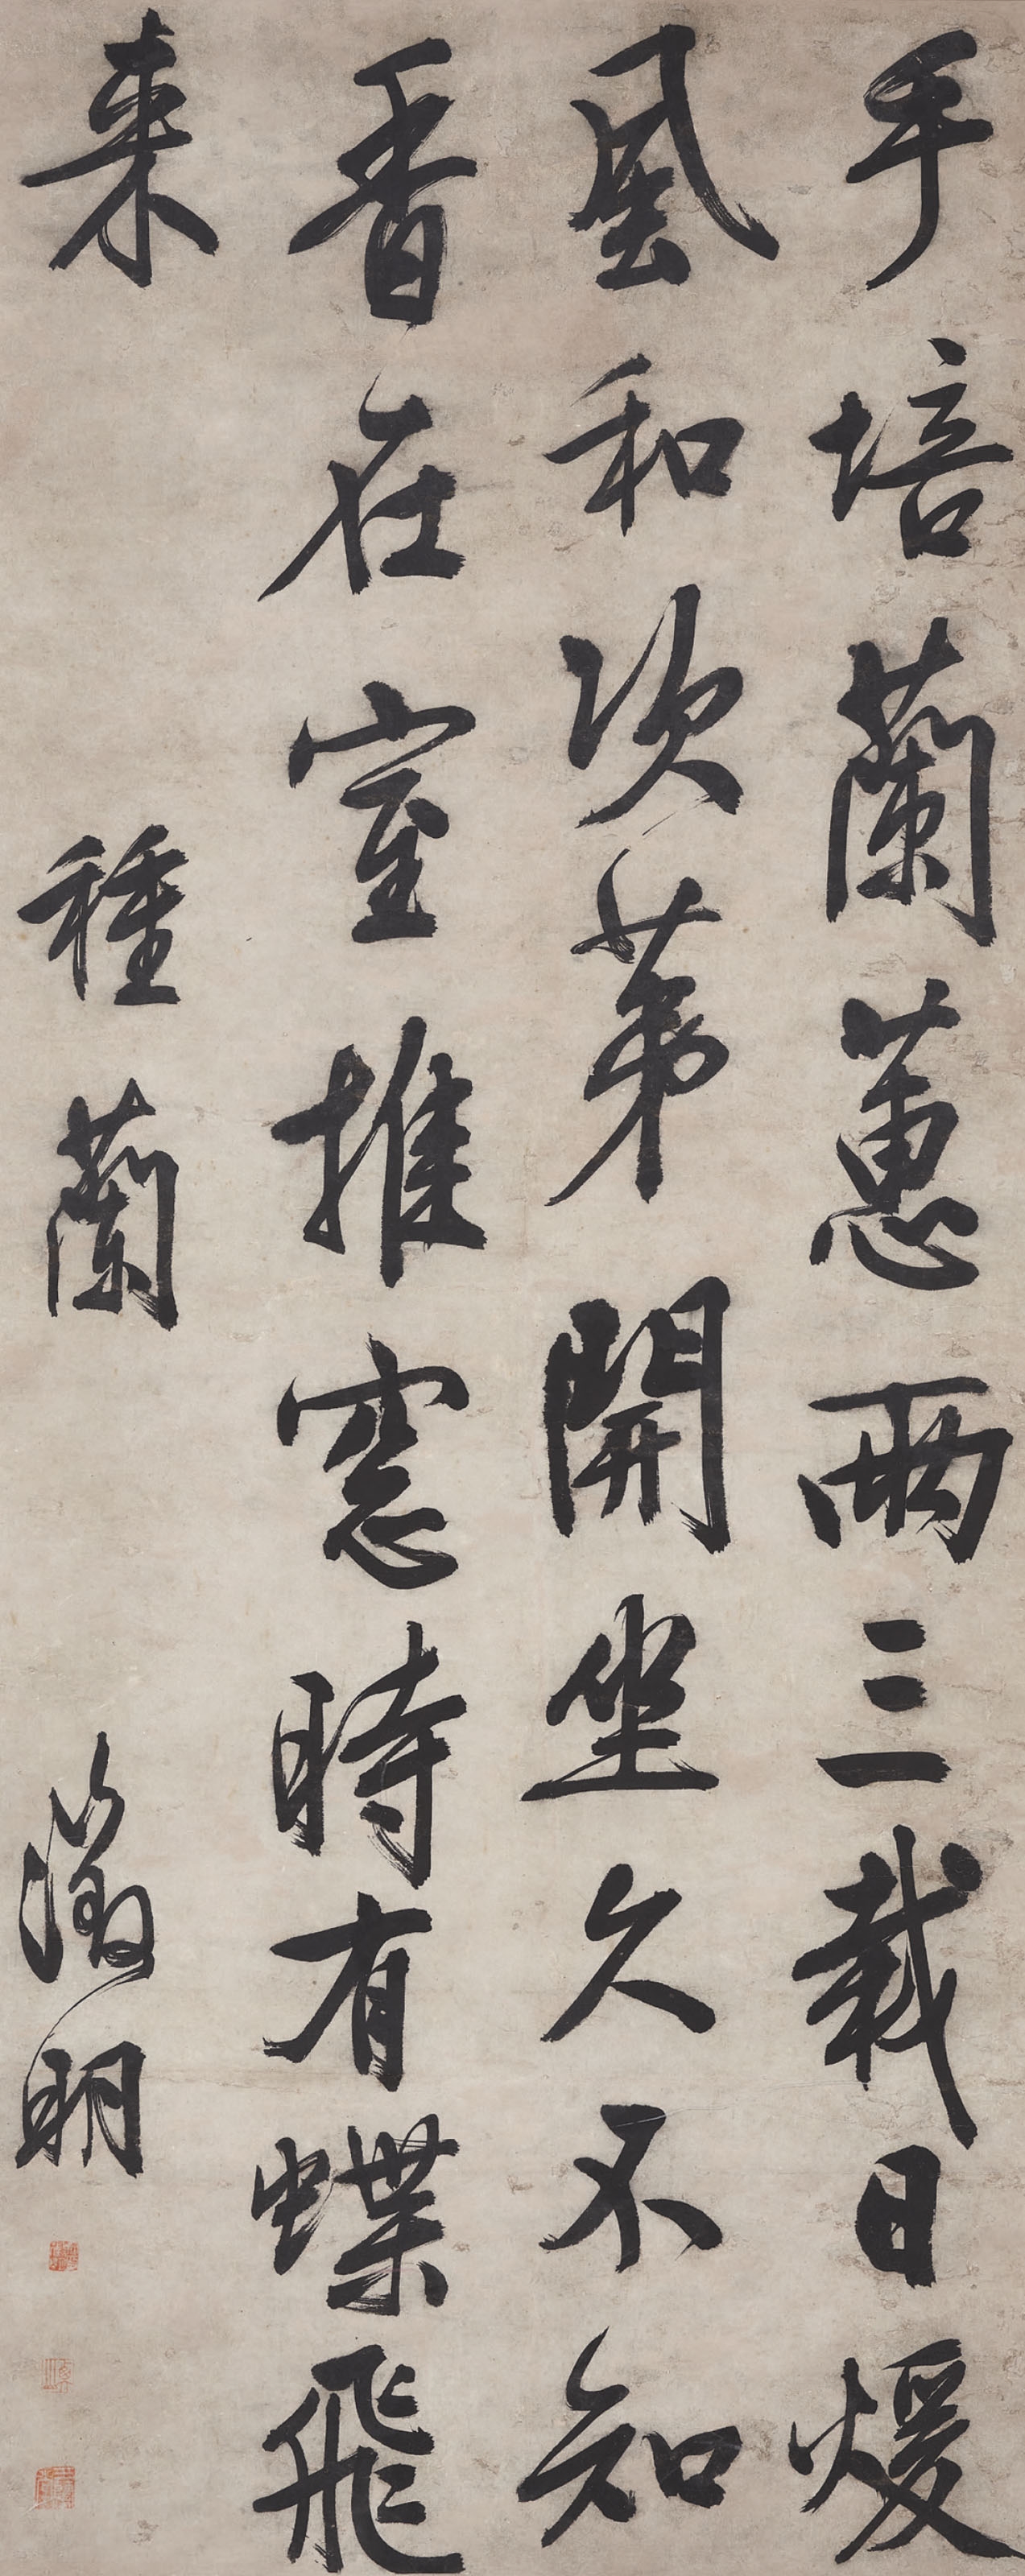 手培蘭蕙兩三栽日煖
風和次苐開坐久不知
香在室推窓時有蝶飛
来　種蘭　徵明